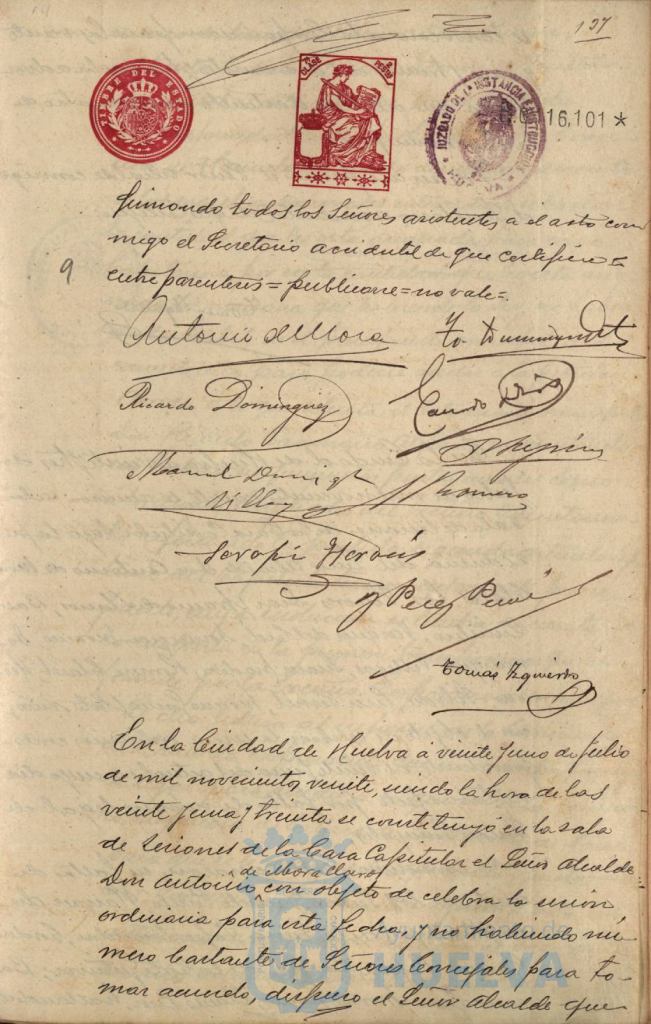 137
TIMBRE DEL ESTADO
7ª CLASE
PESETAS
JUZGADO DE 1ª INSTANCIA E INSTRUCCION
HUELVA
16,101 *
firmando todos los Señores asistentes a el acto con
migo el Secretario accidental de que certifico =
9
entre parentesis = publicarse = no vale =
Antonio de Mora
Ricardo Dominguez
Manuel Doming
Villa
Romero
Serafi
Perez
Tomás Izquierdo
En la Ciudad de Huelva á veinte y uno de Julio
de mil novecientos veinte, siendo la hora de las
veinte y una y treinta se constituyó en la sala
de Sesiones de la Casa Capitular el Señor Alcalde
de Mora Claros
Don Antonio con objeto de celebra la sesión
ordinaria para esta fecha, y no habiendo nú-
mero bastante de Señores Concejales para to-
mar acuerdo, dispuso el Señor Alcalde que
HUELVA